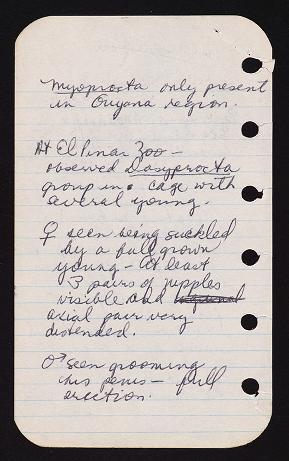 Myoprocta only present
in Guyana region.
At El Pinar Zoo –
observed Dasyprocta
group in cage with
several young.
♀ seen being suckled
by a full grown
young – at least
3 pairs of nipples
visible and
axial pair very
distended.
♂ seen grooming
his penis – full
erection.